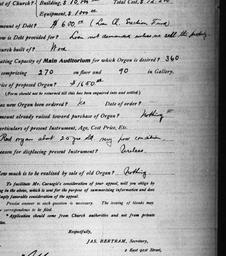 of Church? Building, $ 10,
Equipment, $
Total Cost, $ 12,
unt of Debt? $ 600
is Debt provided for?
urch built of? Wood
ating Capacity of Main Auditorium for which Organ is desired? 360
comprising 270 on floor and 90 in Gallery.
Price of proposed Organ? $ 1650
(Form should not be returned till this has been enquired into and settled.)
as new Organ been ordered? no Date of order?
mount already raised toward purchase of Organ? Nothing
articulars of present Instrument, Age, Cost Price, Etc.
Reed organ about 20 yrs old very poor condition
eason for displacing present Instrument? Useless
ow much to be realised by sale of old Organ? Nothing
To facilitate Mr. Carnegie's consideration of your appeal, will you oblige by
ing in the above, which is sent for the purpose of summarising information and does
mply favorable consideration.
Precise answer to each question is necessary. The issuing of blanks may
correspondence to be filed.
* Application should come from Church authorities and not from private
ties.
Respectfully,
JAS. BERTRAM, Secretary,
2 East 91st Street,